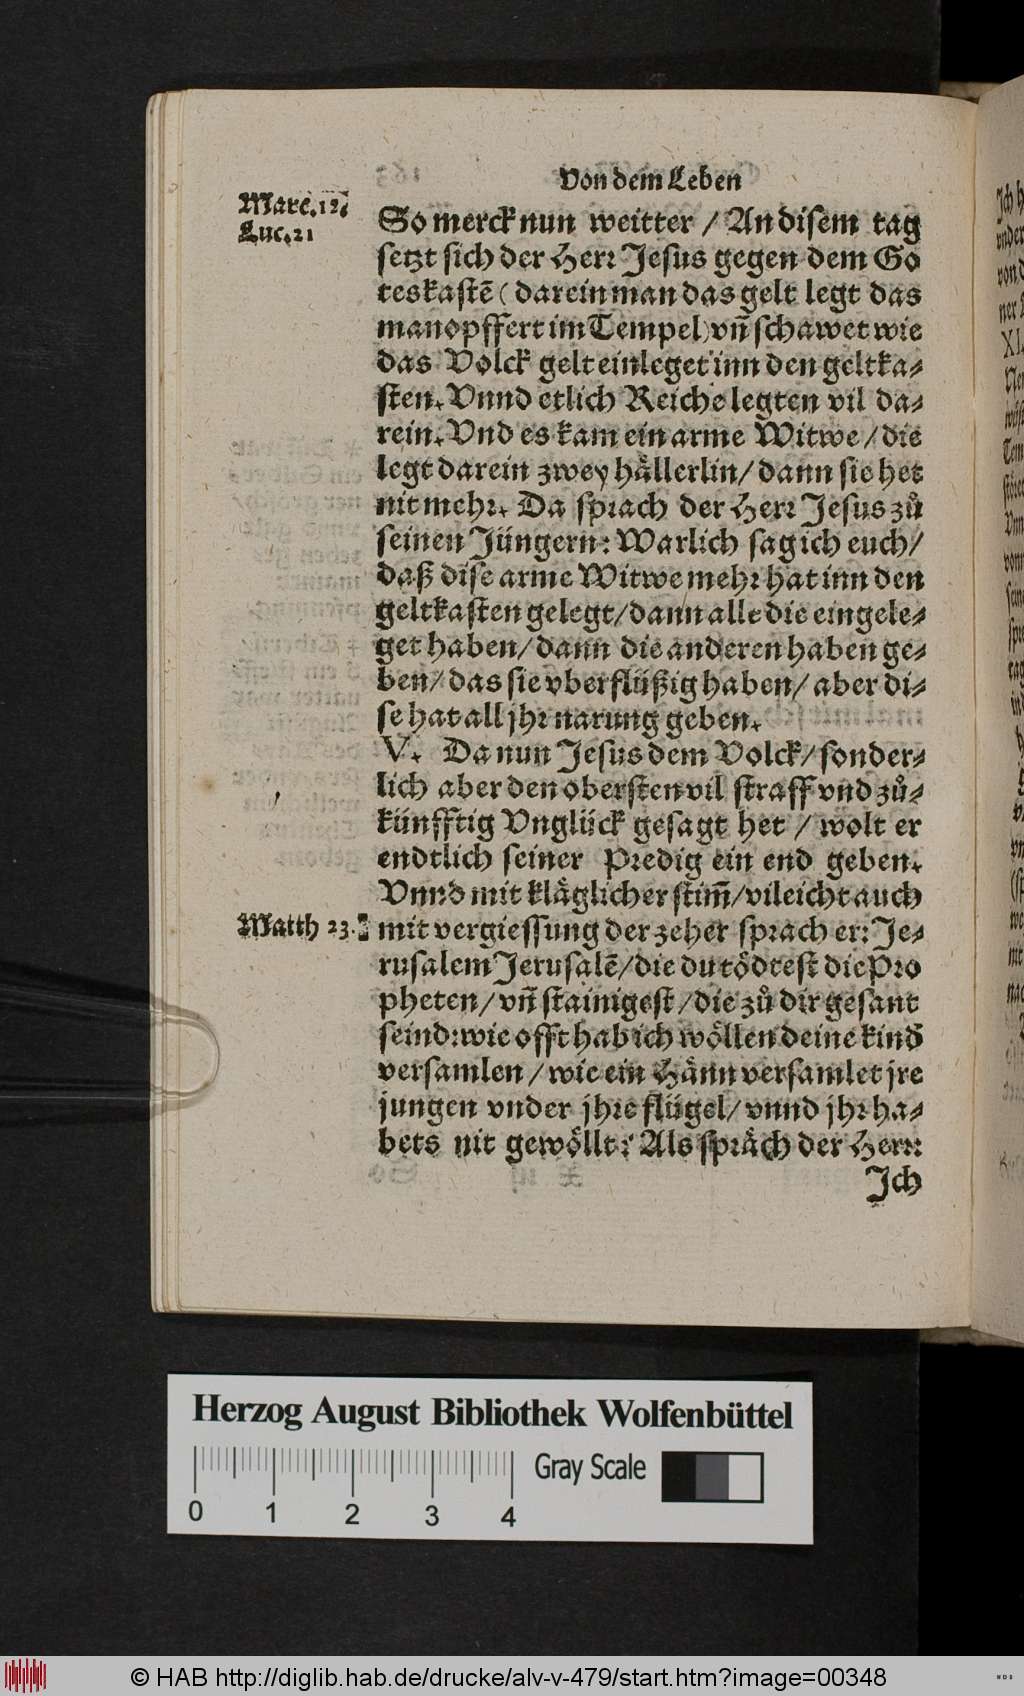 Von dem Leben
Marc. 12.
Luc. 21
So merck nun weitter / An disem tag
setzt sich der Herr Jesus gegen dem Go
teskastẽ ( darein man das gelt legt das
man opffert im Tempel) vñ schawet wie
das Volck gelt einleget inn den geltka-
sten. Vnnd etlich Reiche legten vil da-
rein. Vnd es kam ein arme Witwe / die
legt darein zwey hållerlin / dann sie het
nit mehr. Da sprach der Herr Jesus zů
seinen Jüngern: Warlich sag ich euch /
daß dise arme Witwe mehr hat inn den
geltkasten gelegt / dann alle die eingele-
get haben / dann die anderen haben ge-
ben / das sie vberflüßig haben / aber di-
se hat all jhr narung geben.
V. Da nun Jesus dem Volck / sonder-
lich aber den obersten vil straff vnd zů-
künfftig Vnglück gesagt het / wolt er
endtlich seiner Predig ein end geben.
Vnnd mit klåglicher stim̃ / vileicht auch
Matth 23.
mit vergiessung der zeher sprach er: Je-
rusalem Jerusalẽ / die du tödtest die Pro
pheten / vñ stainigest / die zů dir gesant
seind: wie offt hab ich wöllen deine kind
versamlen / wie ein Hånn versamlet jre
jungen vnder jhre flügel / vnnd jhr ha-
bets nit gewöllt? Als språch der Herr:
Jch
Herzog August Bibliothek Wolfenbüttel
Gray Scale
0 1 2 3 4
© HAB http://diglib.hab.de/drucke/alv-v-479/start.htm?image=00348